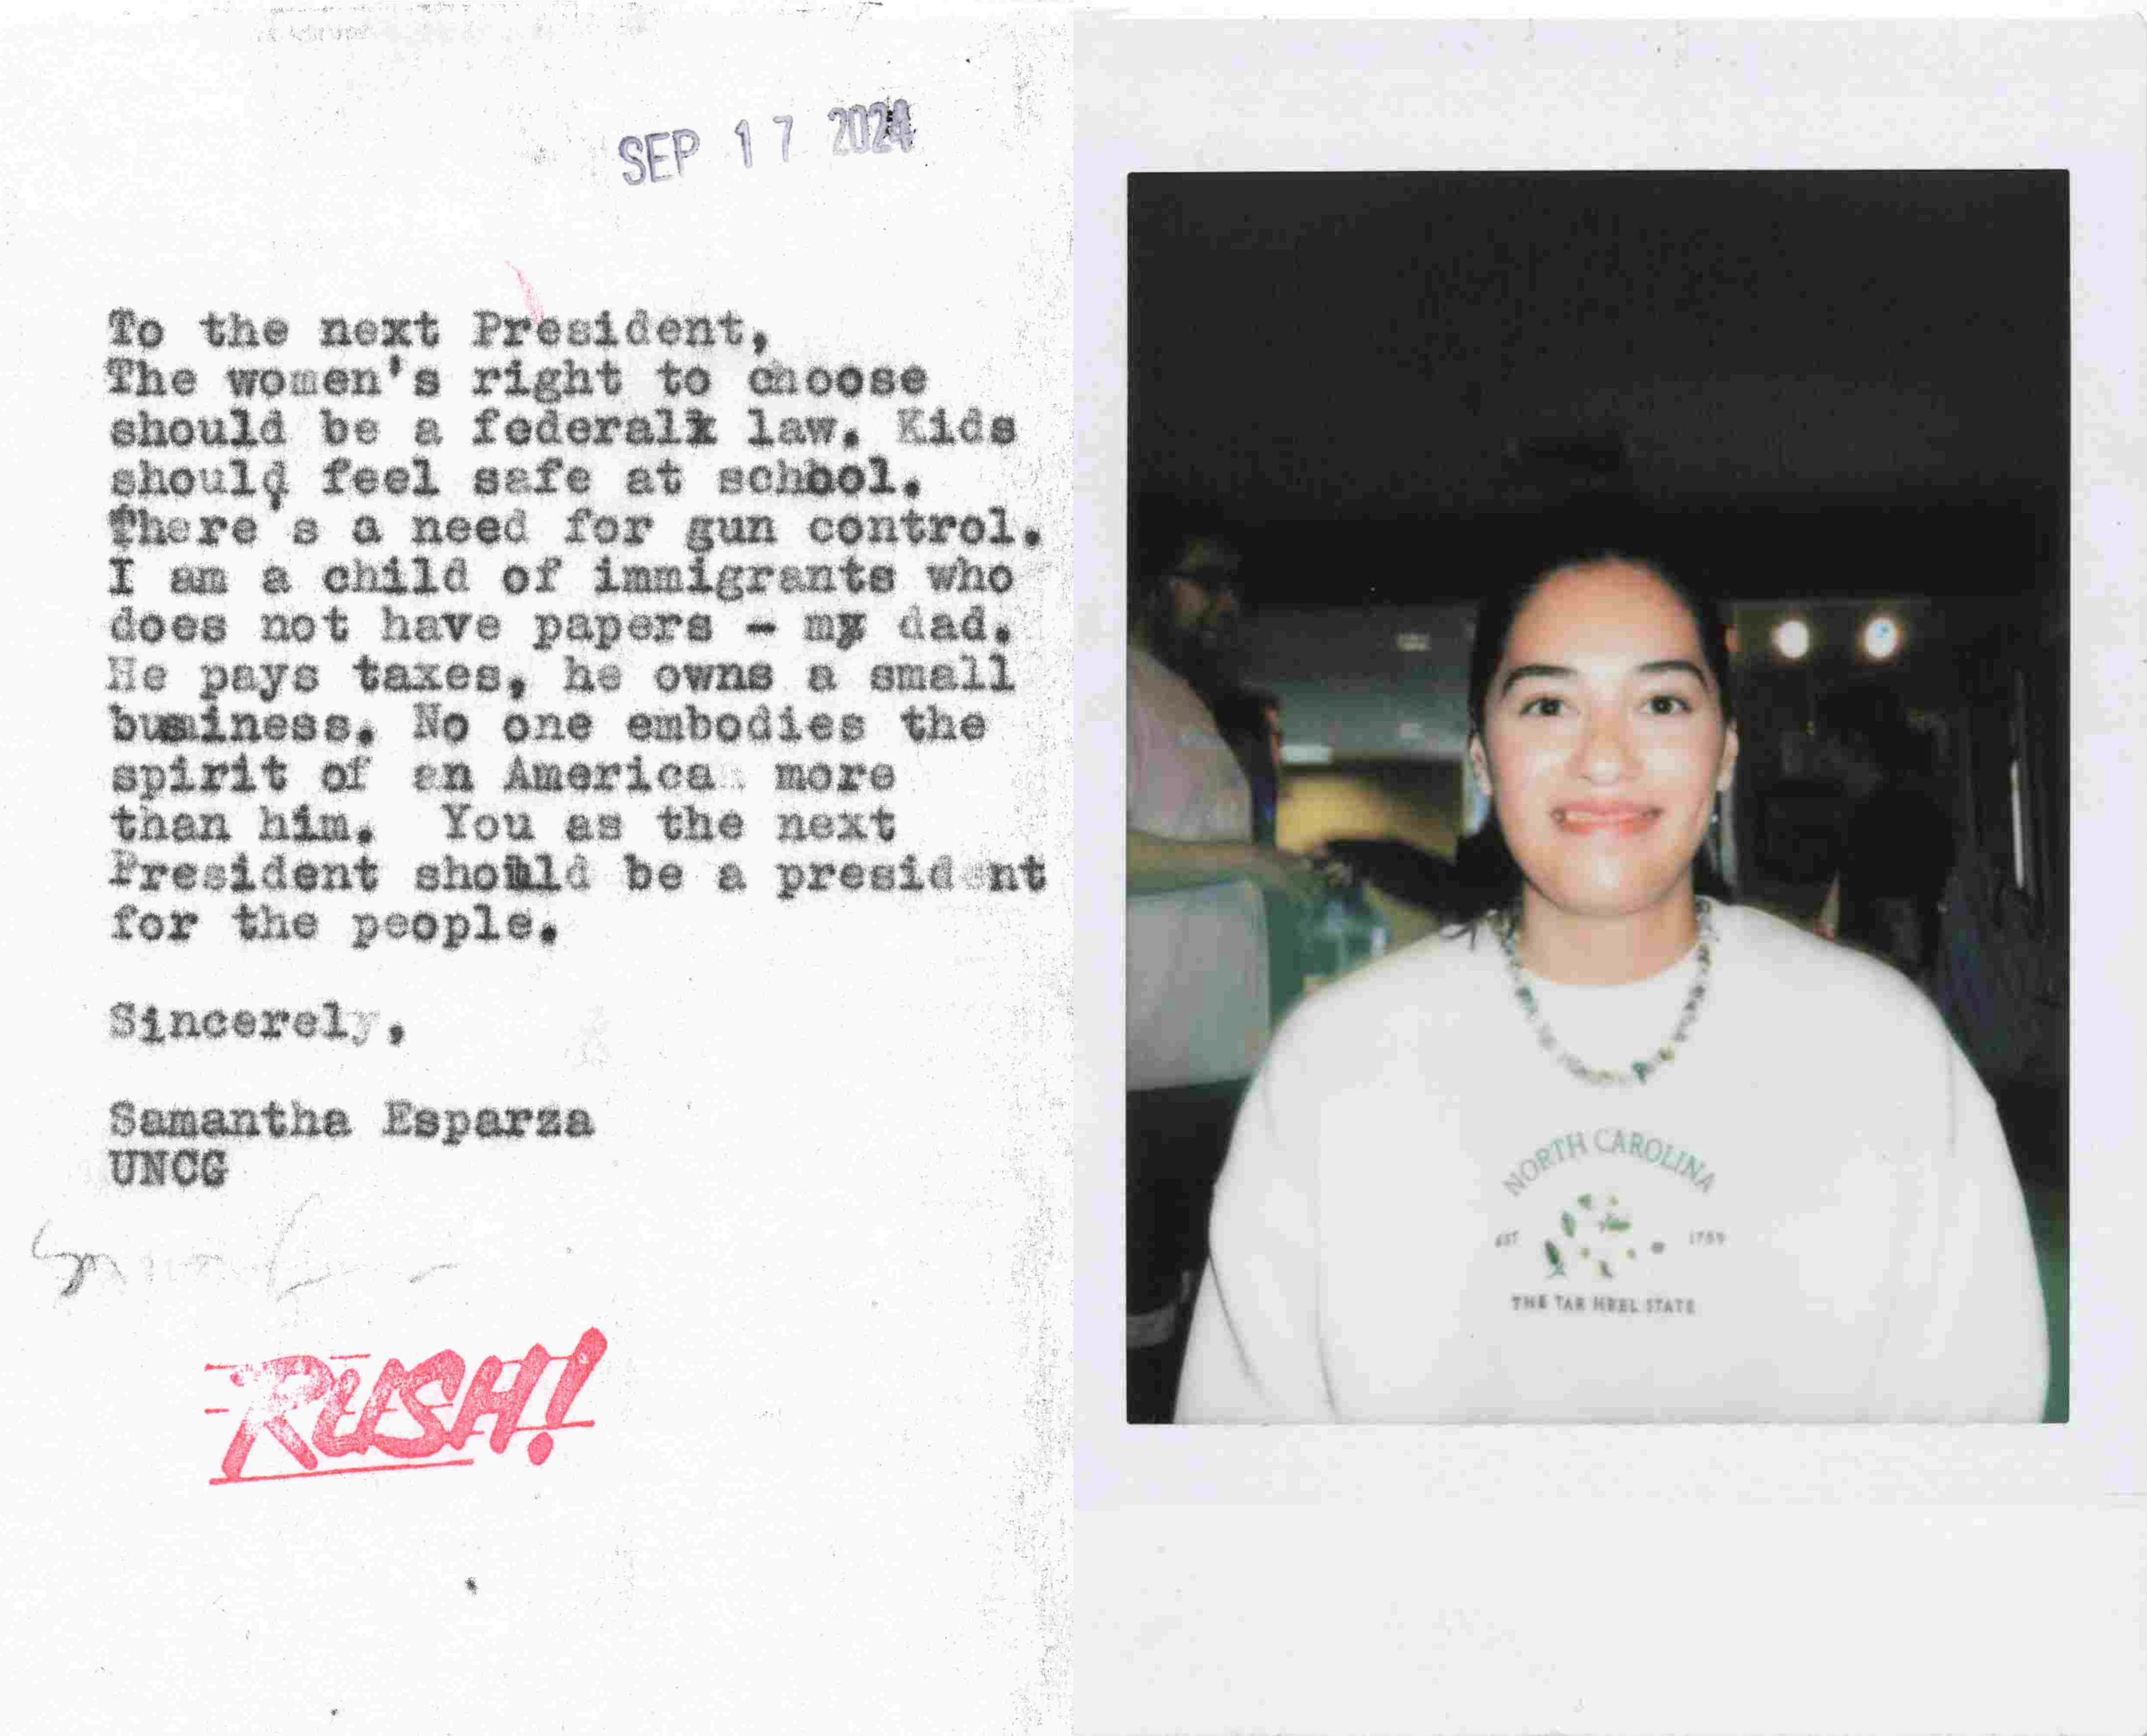 SEP 17 2024
To the next President,
The women's right to choose
should be a federalk law. Kids
should feel safe at school.
There's a need for gun control.
I am a child of immigrants who
does not have papers - my dad.
He pays taxes, he owns a small
business. No one embodies the
spirit of an American more
than him. You as the next
President should be a president
for the people.
Sincerely,
Samantha Esparza
UNCG
RUSH!
NORTH CAROLINA
EST 1789
THE TAR HEEL STATE